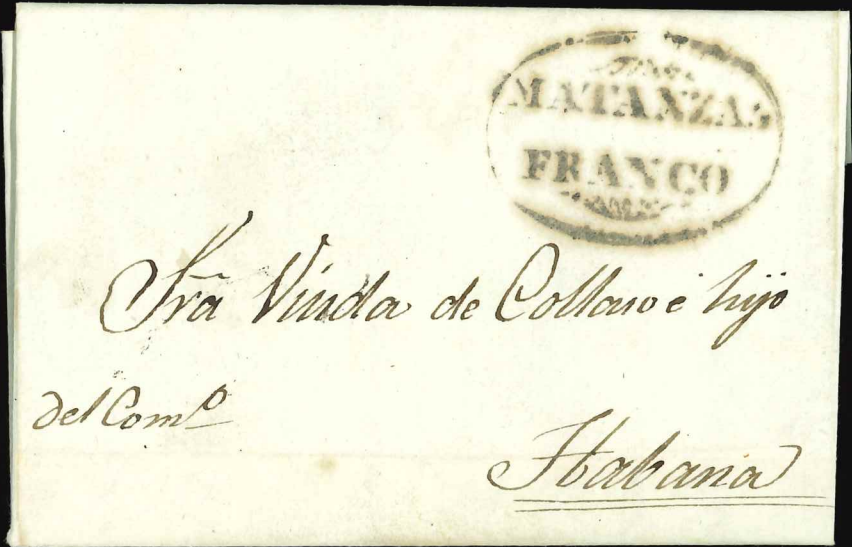 MATANZAS
FRANCO
Sra Viuda de Collazo é hijo
del Como
Habana